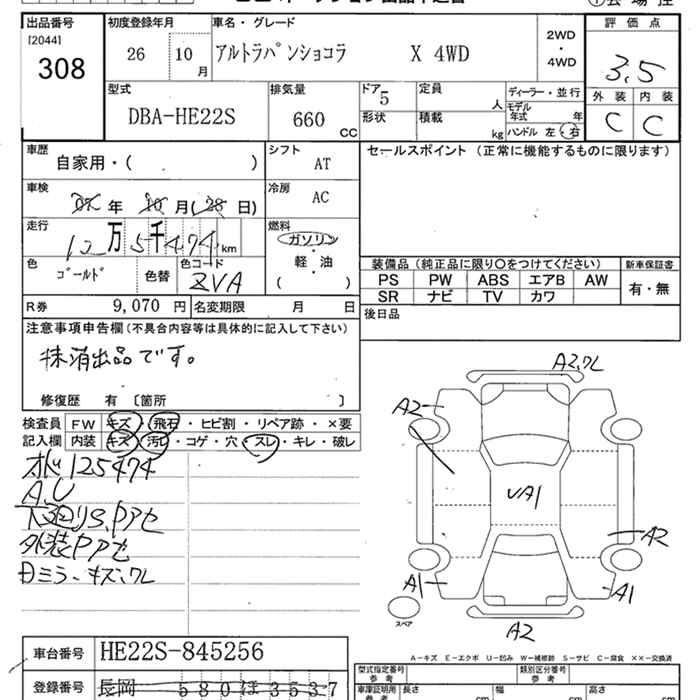 出品番号 初度登録年月 車名・グレード 評価点
[2044] 308 26 10月 アルトラパンショコラ X 4WD 2WD・4WD 3.5
型式 排気量 ドア 5 定員 人 ディーラー・並行 外装 内装
DBA-HE22S 660 CC 形状 積載 kg モデル年式 年 ハンドル 左・右 C C
車歴 自家用・( ) シフト AT セールスポイント (正常に機能するものに限ります)
車検 年 10 月(28 日) 冷房 AC
走行 12万5千474km 燃料 ガソリン 軽・油 ( )
色 ゴールド 色替 色コード ZVA
装備品(純正品に限り○をつけてください) 新車保証書
PS PW ABS エアB AW 有・無
SR ナビ TV カワ
R券 9,070 円 名変期限 月 日 後日品
注意事項申告欄(不具合内容等は具体的に記入して下さい)
抹消出品です。
修復歴 有 〔箇所 〕
検査員 FW キズ・飛石・ヒビ割・リペア跡・×要
記入欄 内装 キズ・汚レ・コゲ・穴・スレ・キレ・破レ
125474
A.U
下廻りS、Pアセ
外装Pアセ
日ミラーキズ、ワレ
A2,ワレ
A2
UA1
A2
A1
A1
スペア
A2
A-キズ E-エクボ U-凹み W-補修跡 S-サビ C-腐食 ××-交換済
車台番号 HE22S-845256
型式指定番号 参考 類別区分番号 参考
登録番号 長岡 580 ほ 3537
車庫証明用 参考 長さ cm 幅 cm 高さ cm